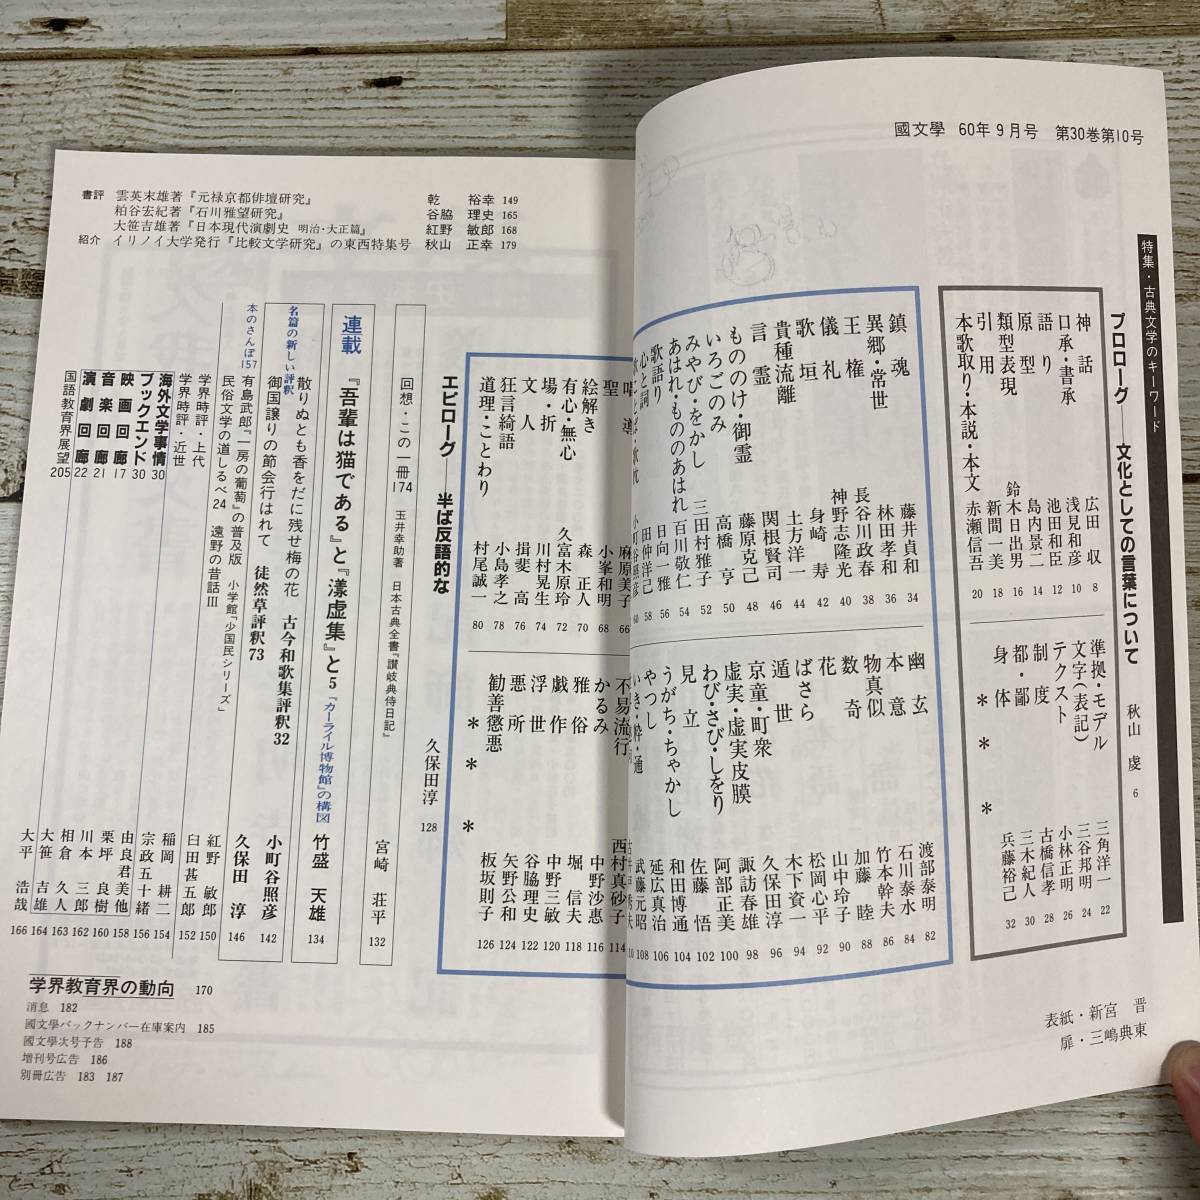 國文學 60年9月号 第30巻第10号
特集・古典文学のキーワード
プロローグ――文化としての言葉について 秋山 虔 6
神話 広田 収 8
口承・書承 浅見和彦 10
語り 池田和臣 12
原型 島内景二 14
類型表現 鈴木日出男 16
引用 新間一美 18
本歌取り・本説・本文 赤瀬信吾 20
準拠・モデル 三角洋一 22
文字(表記) 三谷邦明 24
テクスト 小林正明 26
制度 古橋信孝 28
都・鄙 三木紀人 30
身体 兵藤裕己 32
* *
鎮魂 藤井貞和 34
異郷・常世 林田孝和 36
王権 長谷川政春 38
儀礼 神野志隆光 40
歌垣 身崎 寿 42
貴種流離 土方洋一 44
言霊 関根賢司 46
もののけ・御霊 藤原克己 48
いろごのみ 高橋 亨 50
みやび・をかし 三田村雅子 52
あはれ・もののあはれ 百川敬仁 54
歌語り 日向一雅 56
心と詞 田仲洋己 58
小町谷照彦 60
幽玄 渡部泰明 82
本意 石川泰水 84
物真似 竹本幹夫 86
数奇 加藤 睦 88
花 山中玲子 90
ばさら 松岡心平 92
遁世 木下資一 94
京童・町衆 久保田淳 96
虚実・虚実皮膜 諏訪春雄 98
わび・さび・しをり 阿部正美 100
見立 佐藤 悟 102
うがち・ちゃかし 和田博通 104
やつし 延広真治 106
いき・粋・通 武藤元昭 108
表紙・新宮 晋
扉・三嶋典東
書評 雲英末雄著『元禄京都俳壇研究』 乾 裕幸 149
粕谷宏紀著『石川雅望研究』 谷脇 理史 165
大笹吉雄著『日本現代演劇史 明治・大正篇』 紅野 敏郎 168
紹介 イリノイ大学発行『比較文学研究』の東西特集号 秋山 正幸 179
唱導 麻原美子 66
聖 小峯和明 68
絵解き 森 正人 70
有心・無心 久富木原玲 72
場・折 川村晃生 74
文人 揖斐 高 76
狂言綺語 小島孝之 78
道理・ことわり 村尾誠一 80
不易流行 西村真砂子 114
かるみ 中野沙惠 116
雅俗 堀 信夫 118
戯作 中野三敏 120
浮世 谷脇理史 122
悪所 矢野公和 124
勧善懲悪 板坂則子 126
* *
エピローグ――半ば反語的な 久保田淳 128
回想・この一冊174 玉井幸助著 日本古典全書『讃岐典侍日記』 宮崎 荘平 132
連載
『吾輩は猫である』と『漾虚集』と5 『カーライル博物館』の構図 竹盛 天雄 134
名篇の新しい評釈
散りぬとも香をだに残せ梅の花 古今和歌集評釈32 小町谷照彦 142
御国譲りの節会行はれて 徒然草評釈73 久保田 淳 146
本のさんぽ157
有島武郎『一房の葡萄』の普及版 小学館「少国民シリーズ」 紅野 敏郎 150
民俗文学の道しるべ24 遠野の昔話Ⅲ 臼田甚五郎 152
学界時評・上代 稲岡 耕二 154
学界時評・近世 宗政五十緒 156
海外文学事情30 由良君美他 158
ブックエンド30 栗坪 良樹 160
映画回廊17 川本 三郎 162
音楽回廊21 相倉 久人 163
演劇回廊22 大笹 吉雄 164
国語教育界展望205 大平 浩哉 166
学界教育界の動向 170
消息 182
國文學バックナンバー在庫案内 185
國文學次号予告 188
増刊号広告 186
別冊広告 183 187